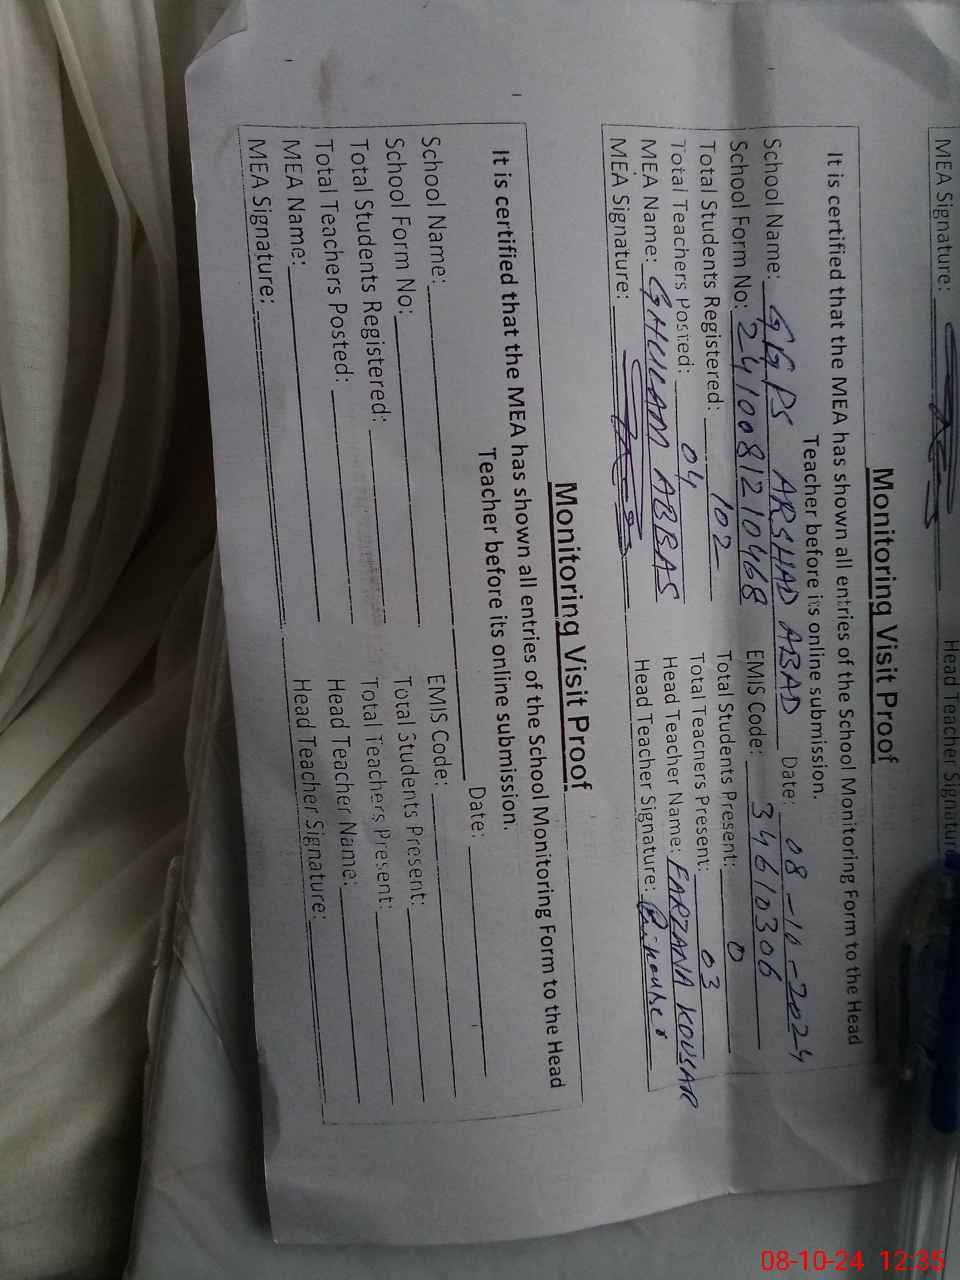 MEA Signature:
Head Teacher Signature
Monitoring Visit Proof
It is certified that the MEA has shown all entries of the School Monitoring Form to the Head
Teacher before its online submission.
School Name: GGPS ARSHAD ABAD Date: 08-10-2024
School Form No: 2410081210468 EMIS Code: 34610306
Total Students Registered: 102 Total Students Present: 0
Total Teachers Posted: 04 Total Teachers Present: 03
MEA Name: GHULAM ABBAS Head Teacher Name: FARZANA KOUSAR
MEA Signature: Head Teacher Signature:
Monitoring Visit Proof
It is certified that the MEA has shown all entries of the School Monitoring Form to the Head
Teacher before its online submission.
School Name: Date:
School Form No: EMIS Code:
Total Students Registered: Total Students Present:
Total Teachers Posted: Total Teachers Present:
MEA Name: Head Teacher Name:
MEA Signature: Head Teacher Signature:
08-10-24 12:35